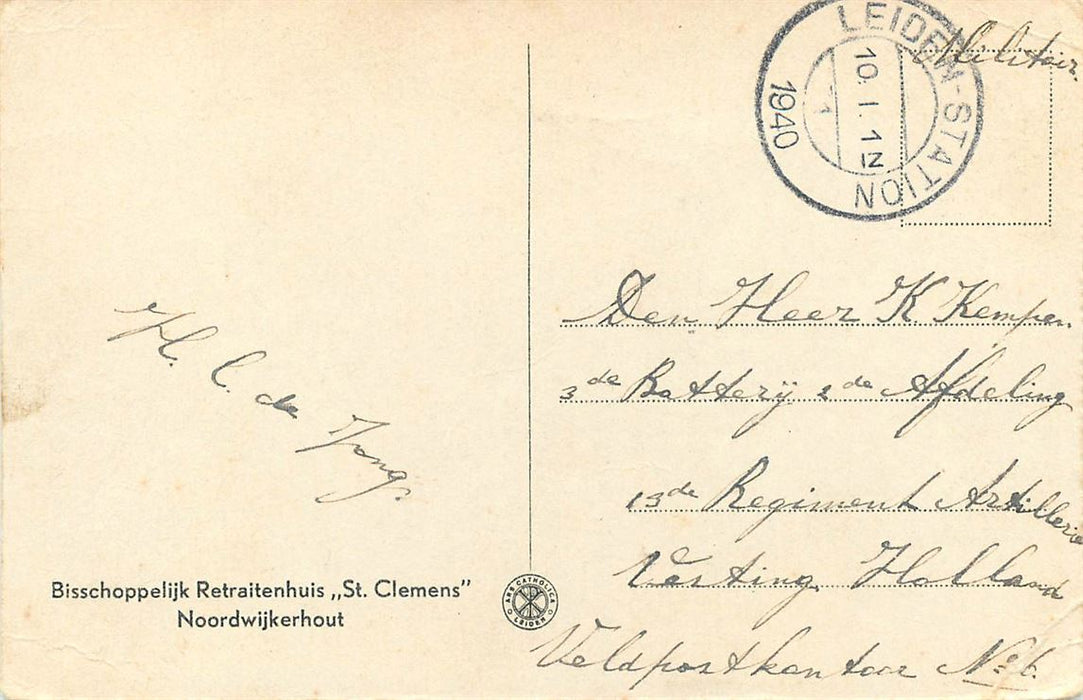 LEIDEN-STATION
10.I.12
1940
Militair.
H. C. de Jong.
Den Heer K. Kempen.
3de Battery 2de Afdeling
13de Regiment Artillerie
Vesting Holland
Veldpostkantoor No. 6.
Bisschoppelijk Retraitenhuis „St. Clemens”
Noordwijkerhout
ARS CATHOLICA
LEIDEN